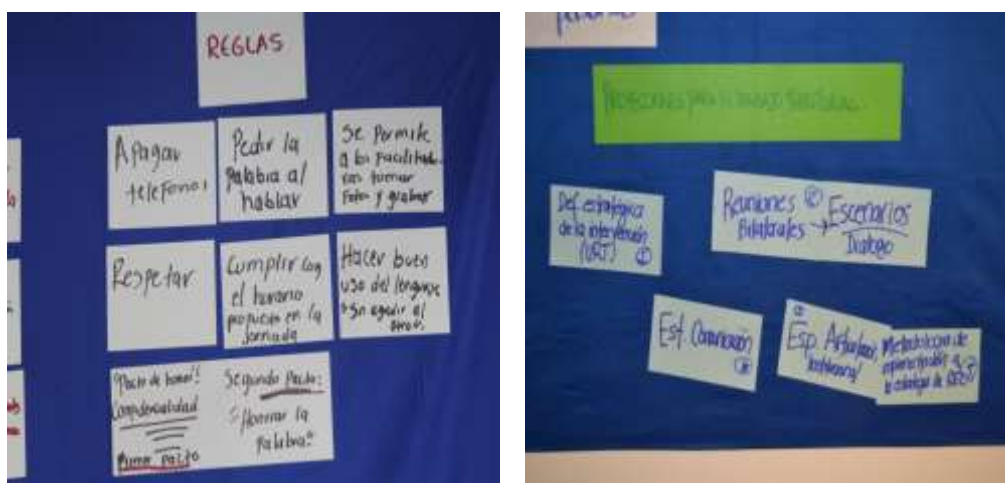 REGLAS
Apagar
telefonos
Pedir la
palabra al
hablar
Se permite
a los facilitado
res tomar
fotos y grabar
Respetar
Cumplir con
el horario
propuesto en la
jornada
Hacer buen
uso del lenguaje
Sin agredir al
otro.
"Pacto de honor"
Confidencialidad
Primer Pacto
Segundo Pacto:
"Honrar la
Palabra"
PROYECCIONES PARA EL TRABAJO TERRITORIAL
Def. estratégica
de la intervención
(URT) ①
Reuniones ② Escenarios
Bilaterales → Dialogo
Est. Comunicación
Esp. Articulación
territorial
Metodología de
la estrategia de